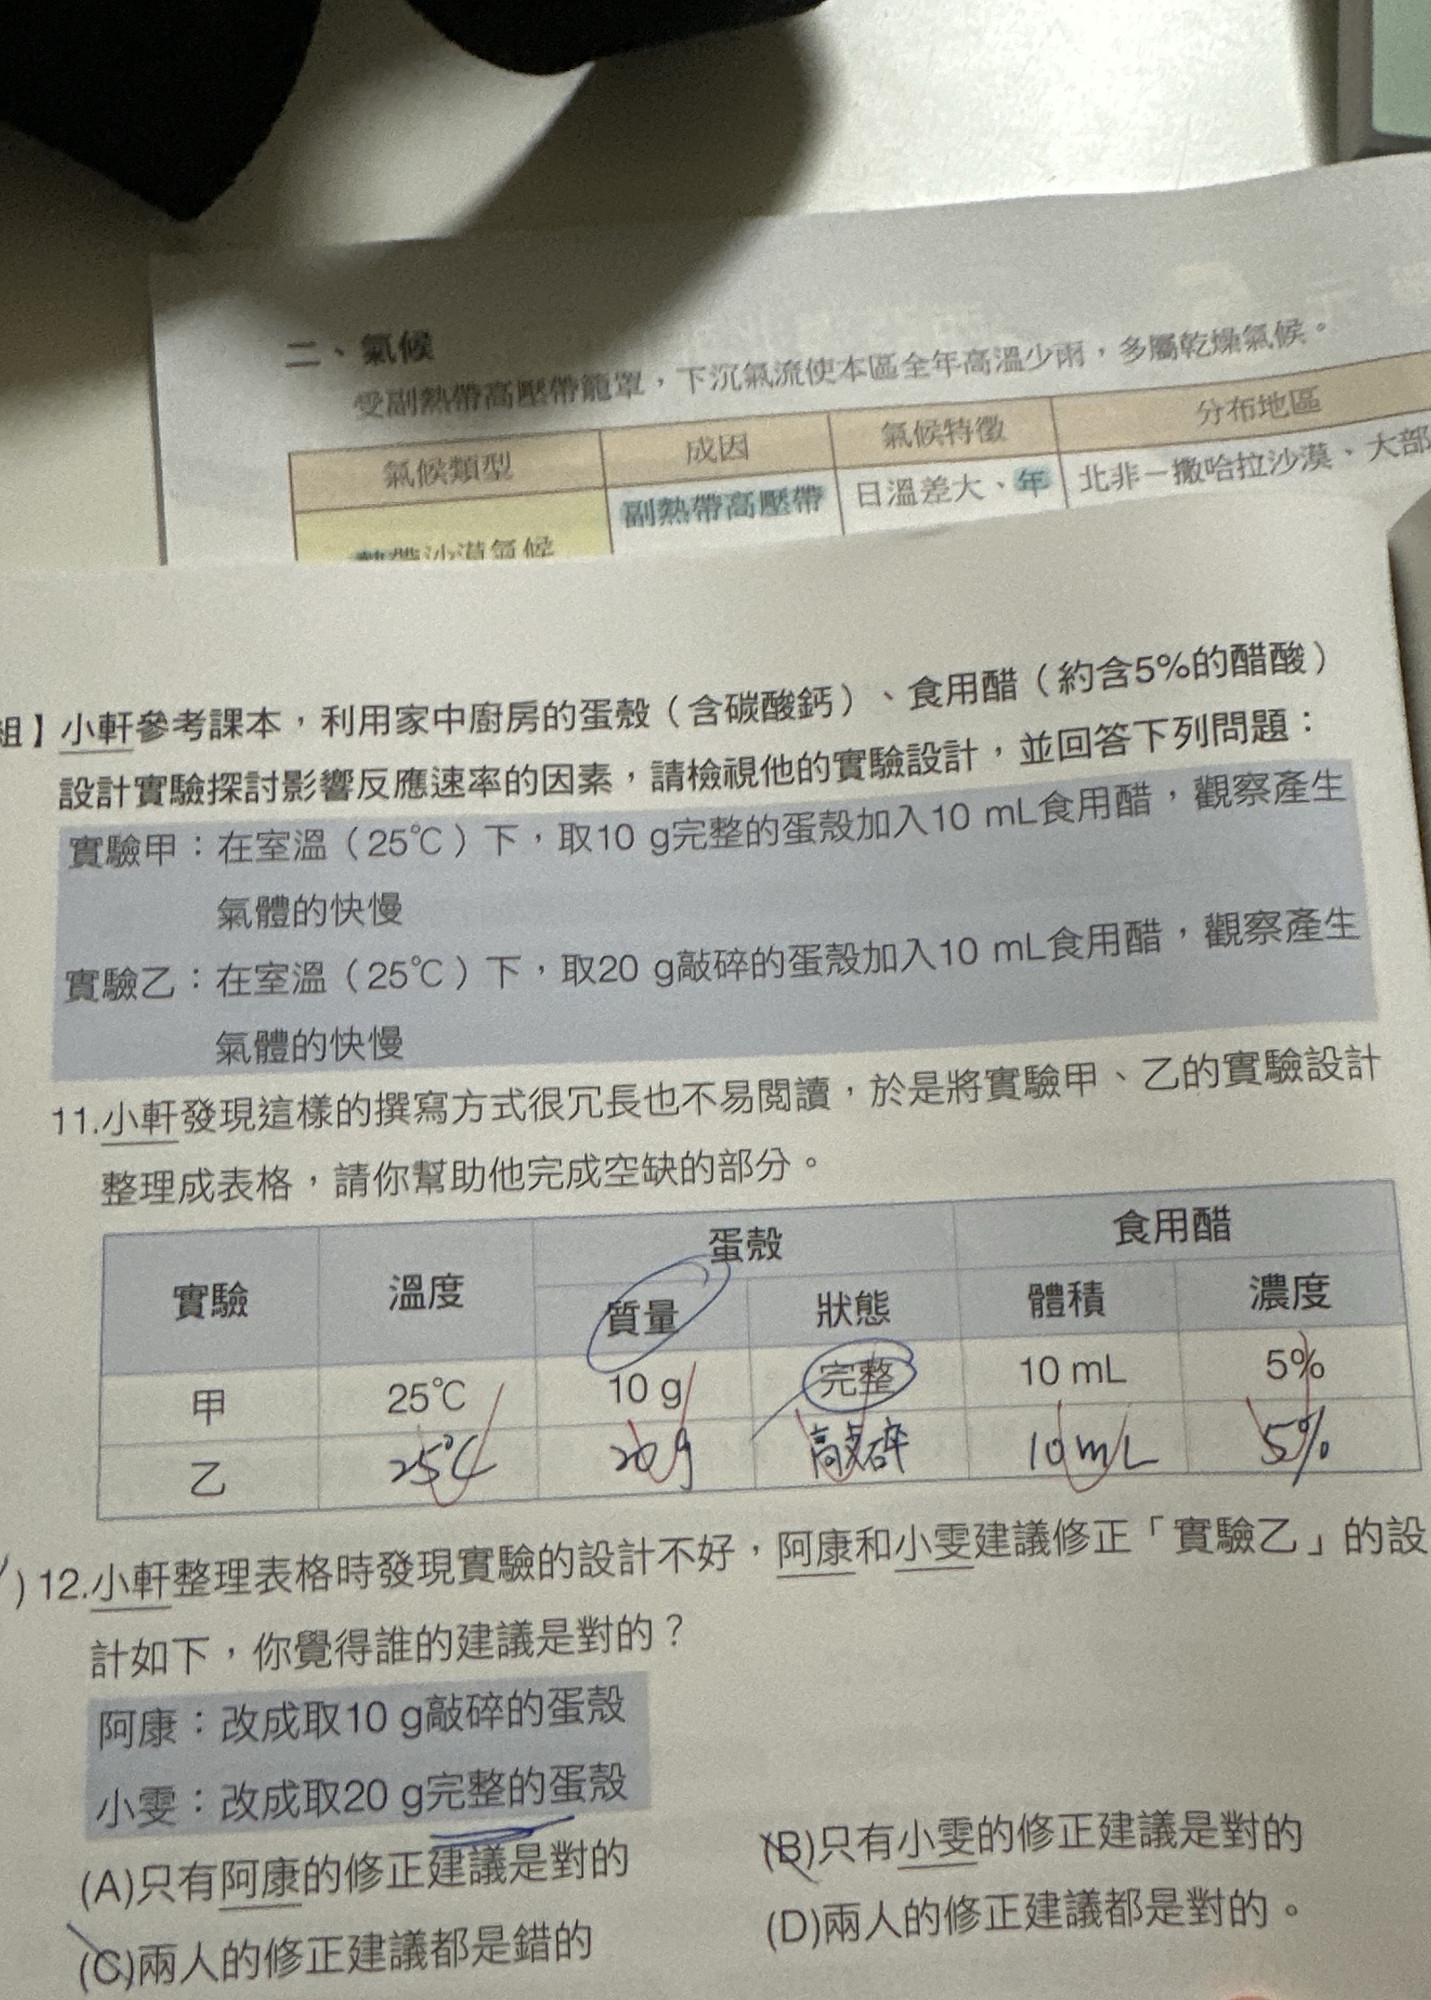 二、氣候
受副熱帶高壓帶籠罩，下沉氣流使本區全年高溫少雨，多屬乾燥氣候。
氣候類型 成因 氣候特徵 分布地區
副熱帶高壓帶 日溫差大、年 北非－撒哈拉沙漠、大部
熱帶沙漠氣候
組】小軒參考課本，利用家中廚房的蛋殼（含碳酸鈣）、食用醋（約含5%的醋酸）
設計實驗探討影響反應速率的因素，請檢視他的實驗設計，並回答下列問題：
實驗甲：在室溫（25℃）下，取10 g完整的蛋殼加入10 mL食用醋，觀察產生
氣體的快慢
實驗乙：在室溫（25℃）下，取20 g敲碎的蛋殼加入10 mL食用醋，觀察產生
氣體的快慢
11.小軒發現這樣的撰寫方式很冗長也不易閱讀，於是將實驗甲、乙的實驗設計
整理成表格，請你幫助他完成空缺的部分。
實驗 溫度 蛋殼 食用醋
質量 狀態 體積 濃度
甲 25℃ 10 g 完整 10 mL 5%
乙 25℃ 20g 敲碎 10mL 5%
)12.小軒整理表格時發現實驗的設計不好，阿康和小雯建議修正「實驗乙」的設
計如下，你覺得誰的建議是對的？
阿康：改成取10 g敲碎的蛋殼
小雯：改成取20 g完整的蛋殼
(A)只有阿康的修正建議是對的 (B)只有小雯的修正建議是對的
(C)兩人的修正建議都是錯的 (D)兩人的修正建議都是對的。